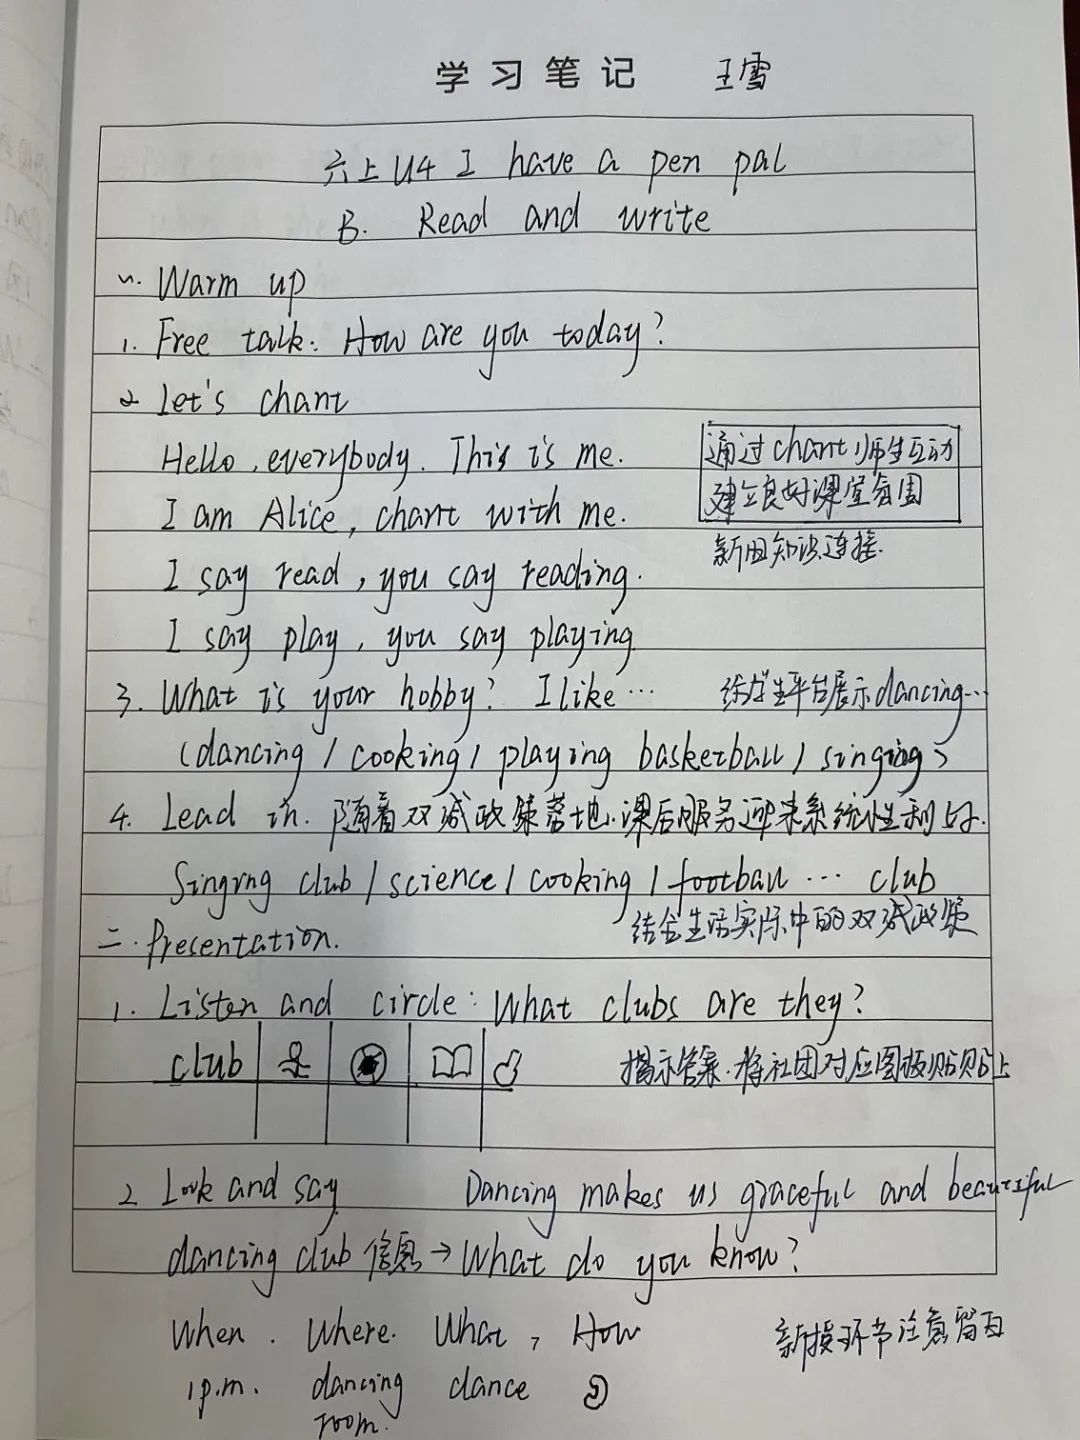 学习笔记 王雪
六上 U4 I have a pen pal
B. Read and write
一. Warm up
1. Free talk: How are you today?
2 Let's chant
Hello, everybody. This is me.
通过chant师生互动
建立良好课堂氛围
I am Alice, chant with me.
新旧知识连接.
I say read, you say reading.
I say play, you say playing
3. What is your hobby? I like … 给学生平台展示dancing…
(dancing / cooking / playing basketball / singing)
4. Lead in. 随着双减政策落地.课后服务迎来系统性利好.
Singing club / science / cooking / football … club
结合生活实际中的双减政策
二. Presentation.
1. Listen and circle: What clubs are they?
club
揭示答案.将社团对应图板贴贴上
2 Look and say Dancing makes us graceful and beautiful
dancing club 信息→What do you know?
When. Where. What, How
新授环节注意留白
1p.m. dancing dance
room.